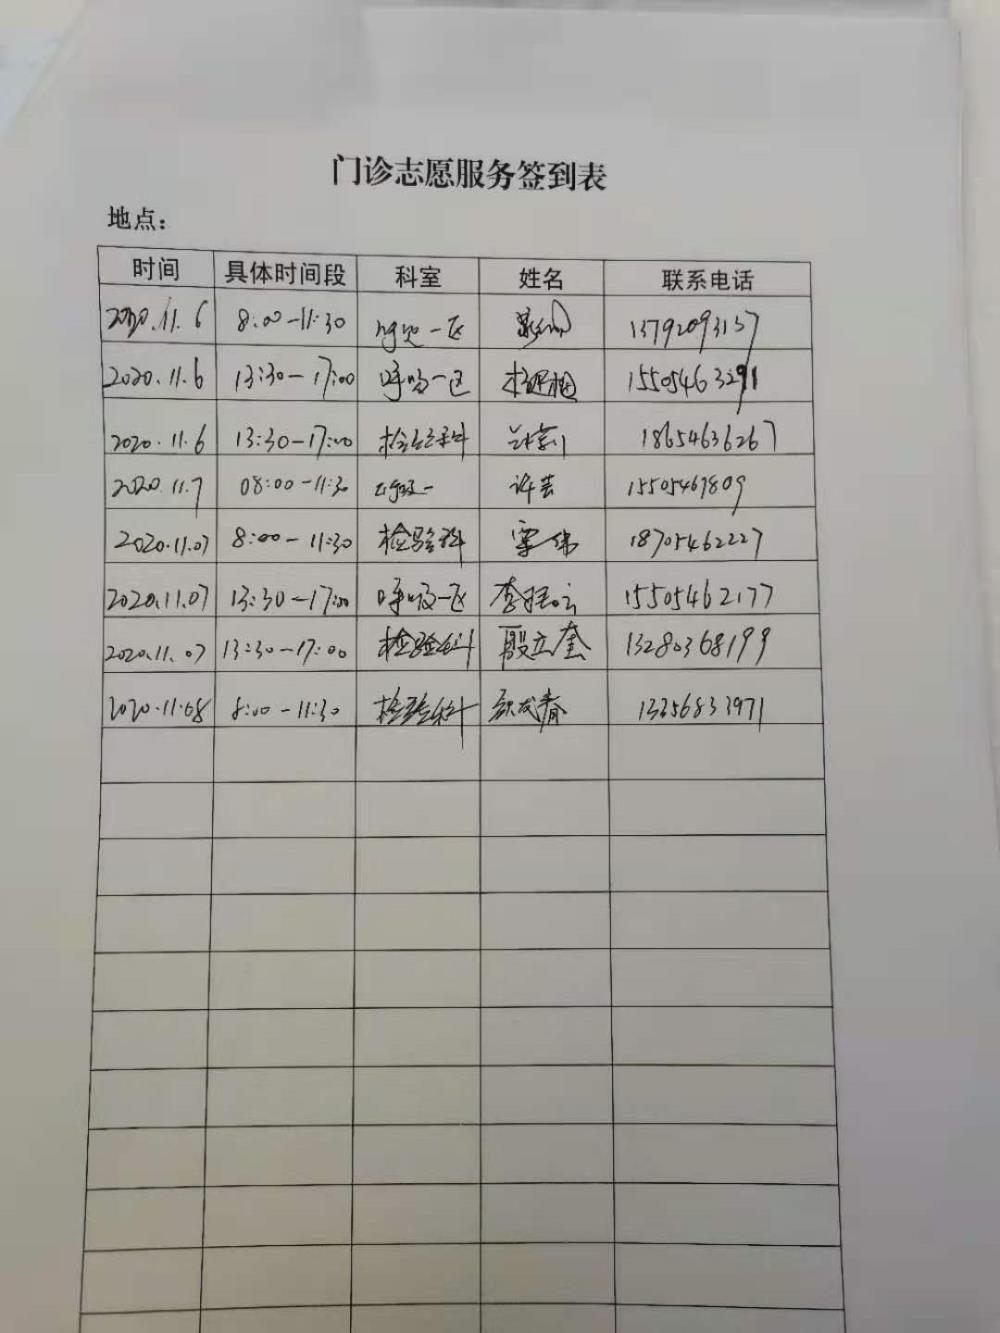 门诊志愿服务签到表
地点：
时间 具体时间段 科室 姓名 联系电话
2020.11.6 8:00-11:30 呼吸一区 13792093137
2020.11.6 13:30-17:00 呼吸一区 15505463291
2020.11.6 13:30-17:00 检验科 18654636267
2020.11.7 08:00-11:30 呼吸一 许芸 15505467809
2020.11.07 8:00-11:30 检验科 覃伟 18705462227
2020.11.07 13:30-17:00 呼吸一区 李 15505462177
2020.11.07 13:30-17:00 检验科 殷立奎 13280368199
2020.11.08 8:00-11:30 检验科 春 13356833971